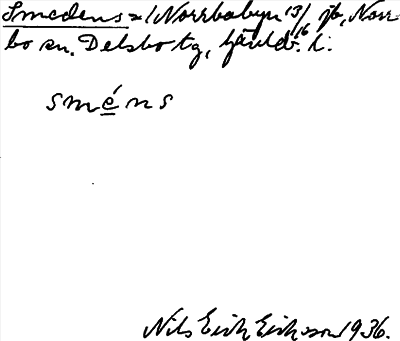 Smedens = 1 Norrbobyn 13/16 jb, Norr-
bo sn. Delsbo tg, Gävleb. l.
sméns
Nils Erik Eriksson 1936.